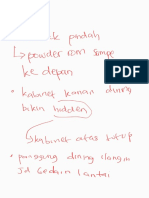 pindah
↳ powder room sampe
ke depan
• kabinet kanan dining
bikin hidden
↳ kabinet atas tutup
• panggung dining ilangin
jd sedain lantai